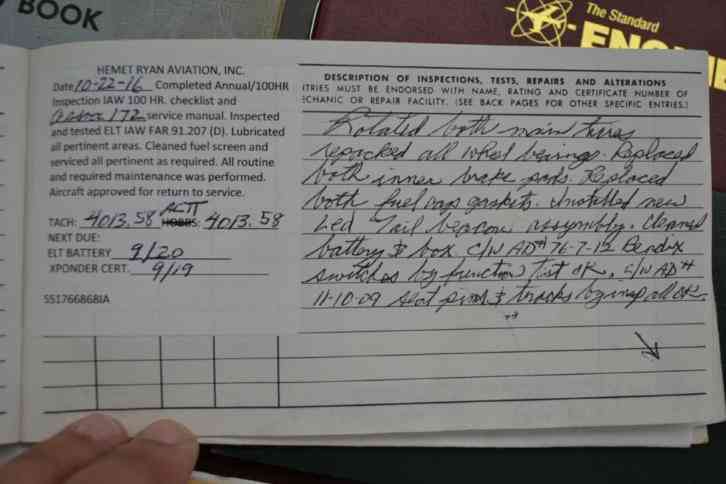 BOOK
The Standard
ENGINE
HEMET RYAN AVIATION, INC.
Date 10-22-16 Completed Annual/100HR
Inspection IAW 100 HR. checklist and
Cessna 172 service manual. Inspected
and tested ELT IAW FAR 91.207 (D). Lubricated
all pertinent areas. Cleaned fuel screen and
serviced all pertinent as required. All routine
and required maintenance was performed.
Aircraft approved for return to service.
ACTT
TACH: 4013.58 HOBBS: 4013.58
NEXT DUE:
ELT BATTERY 9/20
XPONDER CERT. 9/19
551766868IA
DESCRIPTION OF INSPECTIONS, TESTS, REPAIRS AND ALTERATIONS
TRIES MUST BE ENDORSED WITH NAME, RATING AND CERTIFICATE NUMBER OF
ECHANIC OR REPAIR FACILITY. (SEE BACK PAGES FOR OTHER SPECIFIC ENTRIES.)
Rotated both main tires
repacked all wheel berings. Replaced
both inner brake pads. Replaced
both fuel cap gaskets. Installed new
Led Tail beacon assembly. Cleaned
battery & box. C/W AD# 76-7-12 Bendix
switches by function Tst ok. C/W AD#
11-10-09 seat pins & tracks by insp all OK.